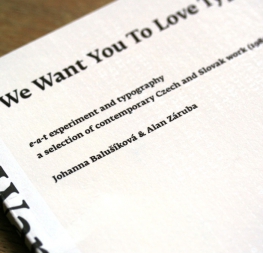 We Want You To Love
e-a-t experiment and typography
a selection of contemporary Czech and Slovak work
Johanna Balušíková & Alan Záruba